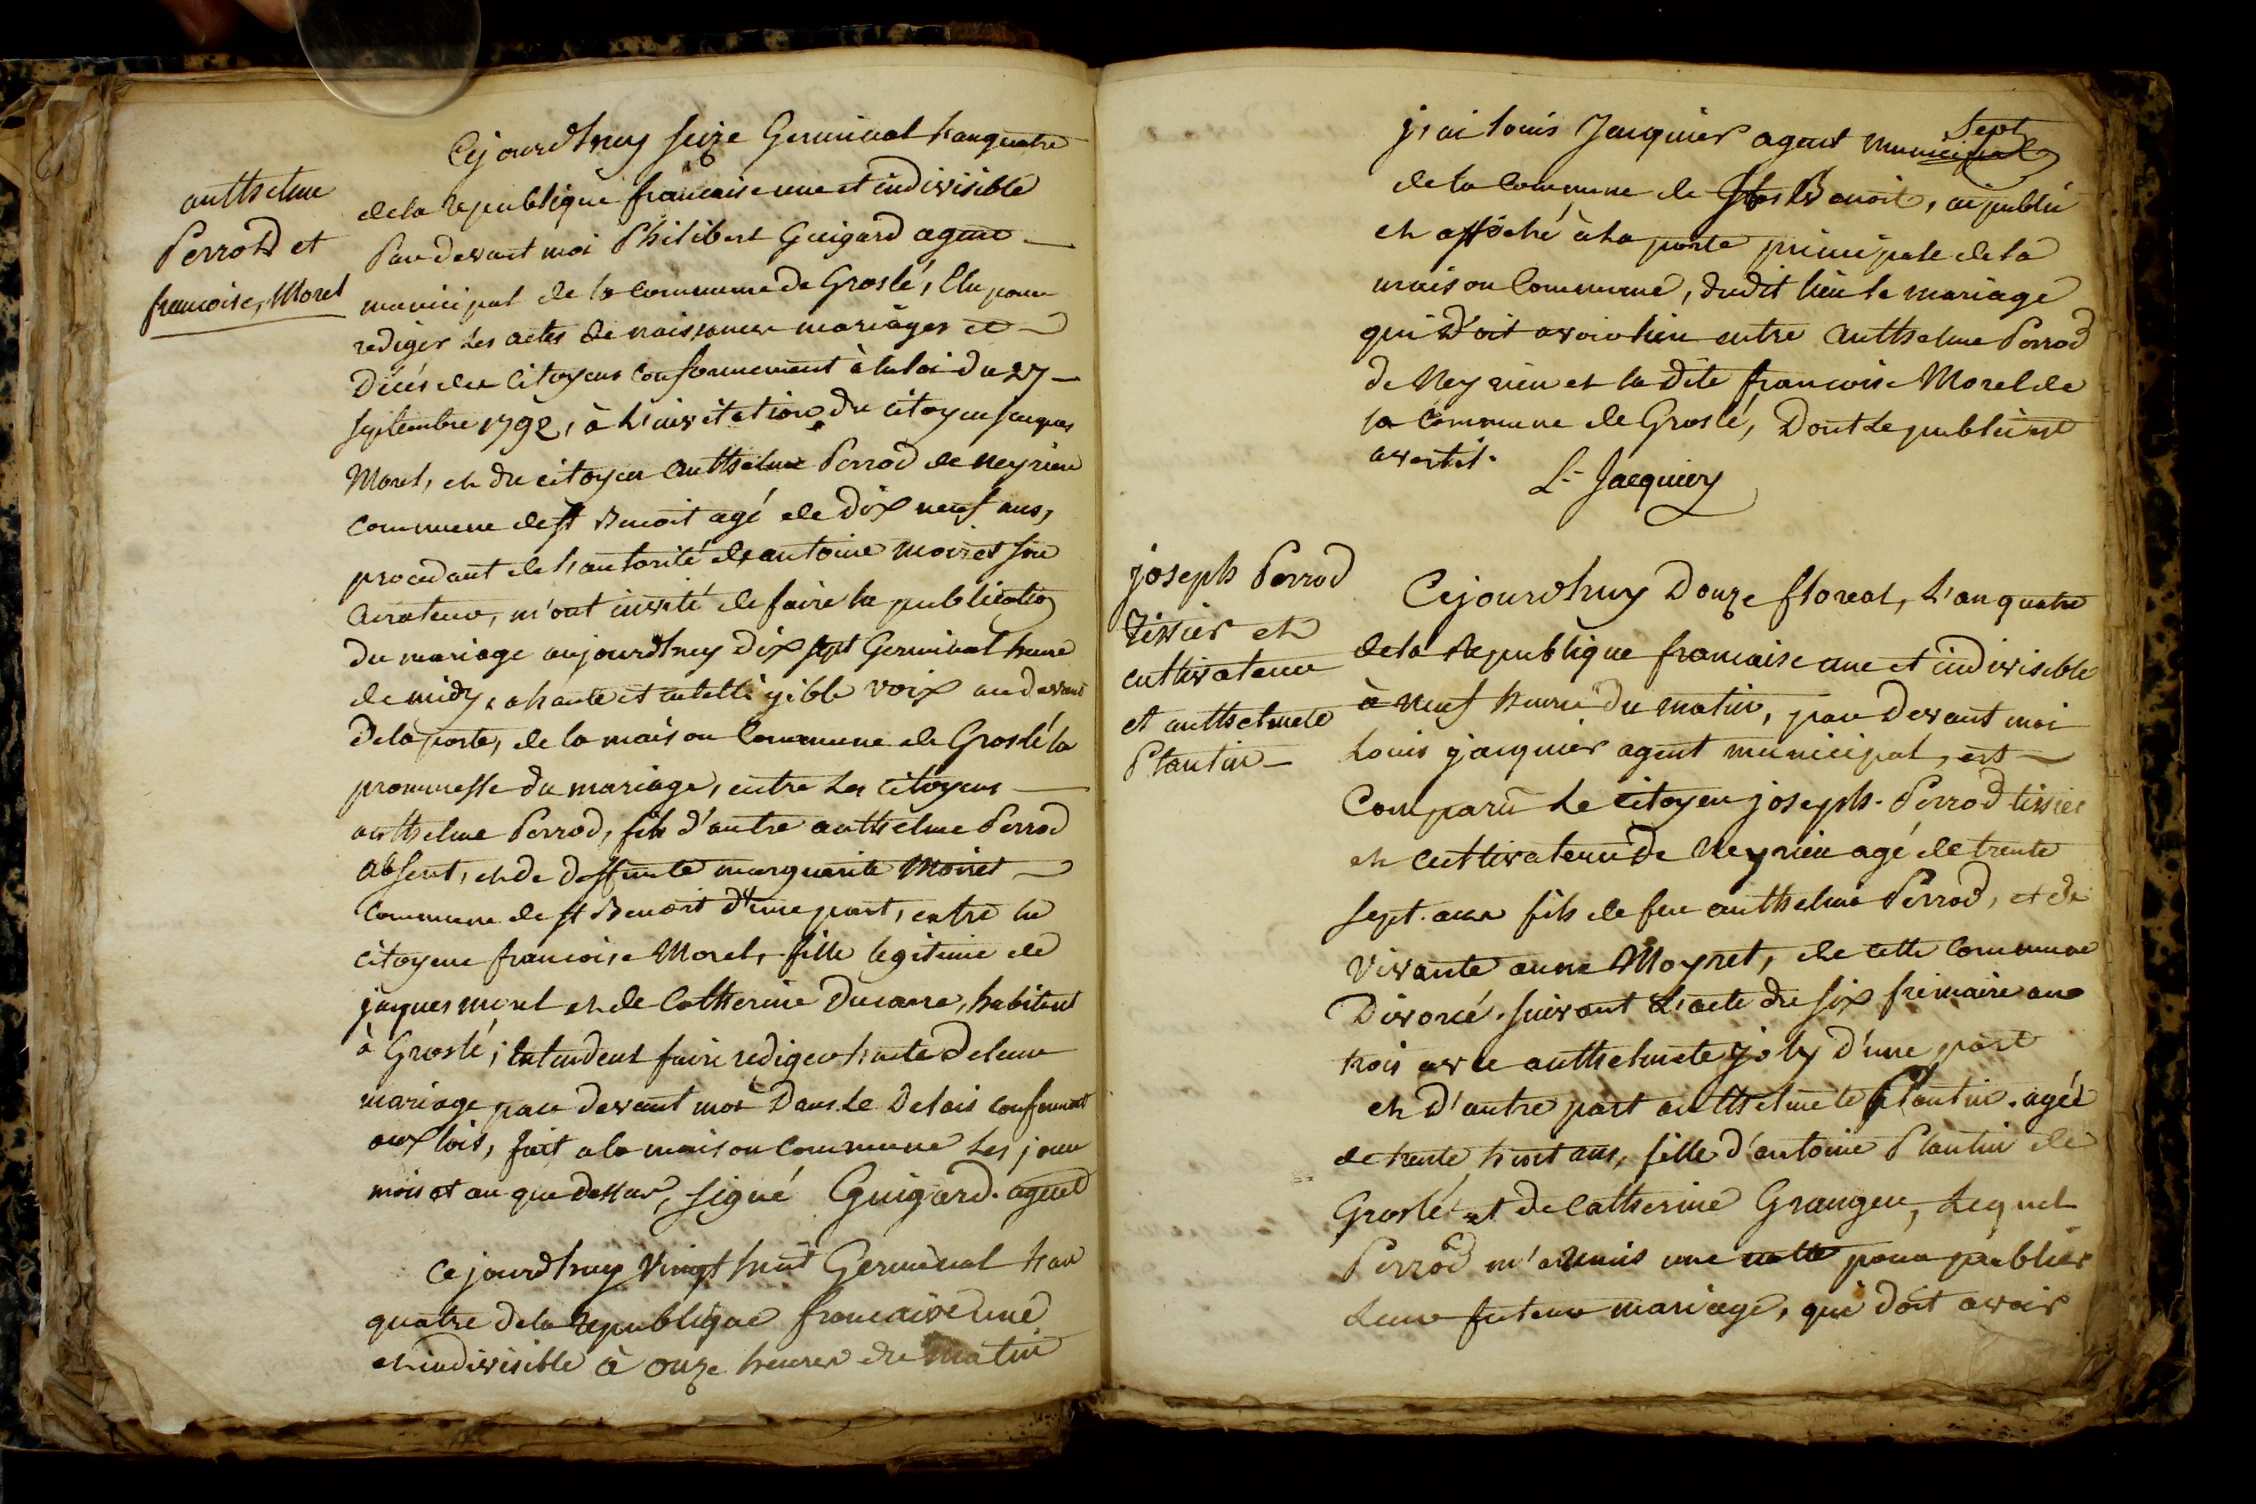 anthelme
Perrod et
francoise, Morel
Cejourdhuy seize Germinal l'an quatre
dela republique francaise une et indivisible
Par devant moi Philibert Guigard agent
municipal de la commune de Groslé, Elu pour
rediger les actes de naissances mariages et
Décés des Citoyens conformement à la loi du 27
septembre 1792, à l'invitation du citoyen jacques
Morel, et du citoyen anthelme Perrod de neyrieu
commune de st Benoit agé de dix neuf ans,
procedant de l'autorité de antoine moiret son
Curateur, m'ont invité de faire la publication
du mariage aujourdhuy dix sept Germinal heure
de midy, a haute et intelligible voix au devant
dela porte, de la maison Commune de Groslé la
prommesse du mariage, entre les citoyens
anthelme Perrod, fils d'autre anthelme Perrod
absent, et de deffunte marguerite Moiret
Commune de st Benoit d'une part, entre la
citoyene francoise Morel, fille legitime de
jacques morel et de Catherine Ducarre, habitant
à Groslé; Entendent faire rediger l'acte deleur
mariage par devant moi dans le delais conforment
aux lois, fait a la maison commune les jour
mois et an que dessus, signé Guigard. agent
Cejourdhuy vingt huit Germinal l'an
quatre dela republique francaise une
et indivisible à onze heures du matin
j'ai louis Jacquier agent municipal
de la Commune de st Benoit, ai publié
et affiché à la porte principale de la
maison Commune, dudit lieu le mariage
qui doit avoir lieu entre anthelme Perrod
de Neyrieu et la dite francoise Morel de
la Commune de Groslé, Dont le public est
avertit.
L. Jacquier
joseph Perrod
Tissier et
cultivateur
et anthelmete
Plantin
Cejourdhuy Douze floreal, l'an quatre
dela Republique francaise une et indivisible
à neuf heure du matin, par devant moi
Louis jacquier agent municipal, est
Comparu le citoyen joseph. Perrod tissier
et cultivateur de Neyrieu agé de trente
sept. ans fils de feu anthelme Perrod, et de
vivante anne Moyret, de cette commune
Divorcé. suivant l'acte du six frimaire an
trois avec anthelmete joly d'une part
et d'autre part anthelmete Plantin. agée
de trente huit ans, fille d'antoine Plantin de
Groslé et de Catherine Granger, Lequel
Perrod m'a remis une notte pour publier
Leur futeur mariage, qui doit avoir